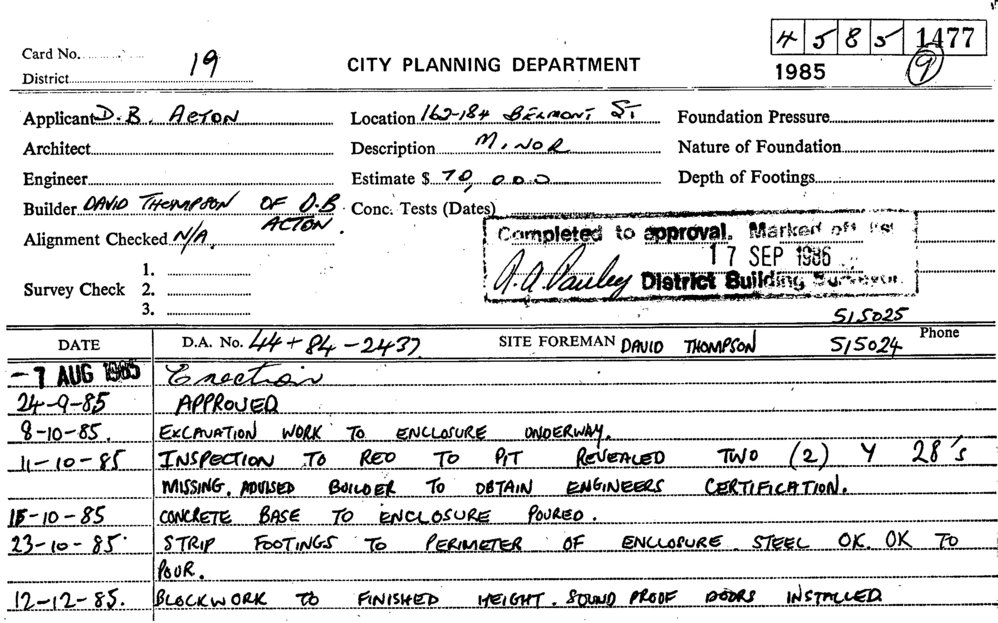 4 5 8 5 1477
Card No.
19
CITY PLANNING DEPARTMENT
1985
9
District
Applicant D.B. ACTON
Location 162-184 BELMONT ST
Foundation Pressure
Architect
Description MINOR
Nature of Foundation
Engineer
Estimate $ 70,000
Depth of Footings
Builder DAVID THOMPSON OF D.B ACTON.
Conc. Tests (Dates)
Alignment Checked N/A.
Completed to approval. Marked off list
17 SEP 1986
District Building Surveyor.
Survey Check
1.
2.
3.
515025
DATE
D.A. No. 44+84-2437
SITE FOREMAN DAVID THOMPSON
515024
Phone
-7 AUG 1985 Erection
24-9-85 APPROVED
8-10-85. EXCAVATION WORK TO ENCLOSURE UNDERWAY.
11-10-85 INSPECTION TO REO TO PIT REVEALED TWO (2) Y 28's
MISSING. ADVISED BUILDER TO OBTAIN ENGINEERS CERTIFICATION.
15-10-85 CONCRETE BASE TO ENCLOSURE POURED.
23-10-85 STRIP FOOTINGS TO PERIMETER OF ENCLOSURE STEEL OK. OK TO
POUR.
12-12-85. BLOCKWORK TO FINISHED HEIGHT. SOUND PROOF DOORS INSTALLED